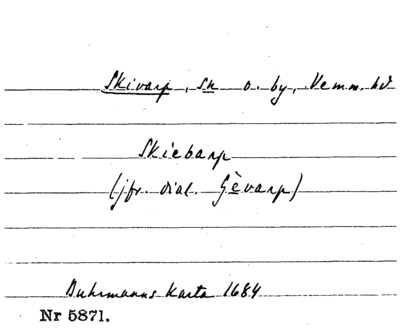 Skivarp, sn o. by, Vemm. hd
Skiebarp
(jfr. dial. Gèvarp)
Buhrmanns Karta 1684
Nr 5871.